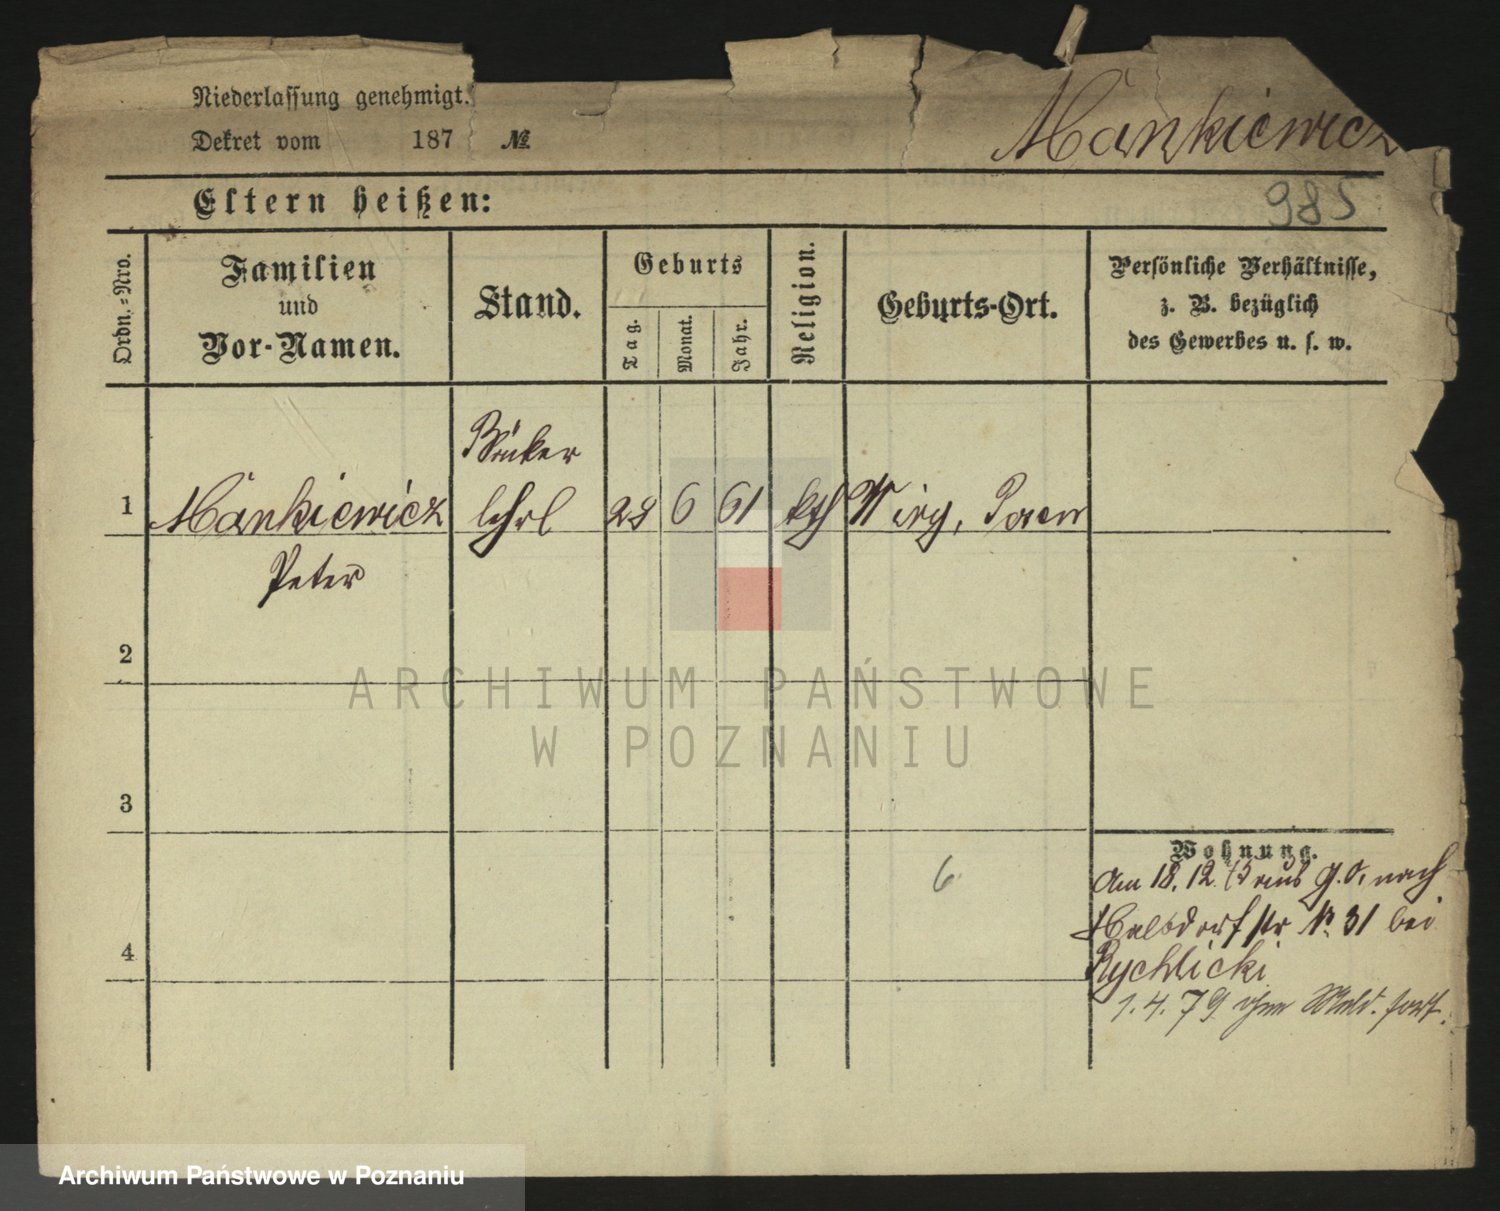 Niederlassung genehmigt.
Dekret vom 187 №
Mankiewicz
Eltern heißen:
985
Ordn.-Nro.
Familien
und
Vor-Namen.
Stand.
Geburts
Tag.
Monat.
Jahr.
Religion.
Geburts-Ort.
Persönliche Verhältnisse,
z. B. bezüglich
des Gewerbes u. s. w.
Bäcker
1 Mankiewicz lehrl 28 6 61 kth Wiry, Posen
Peter
2
ARCHIWUM PAŃSTWOWE
W POZNANIU
3
Wohnung.
6
Am 18. 12. aus g. O. nach
Halbdorfstr № 31 bei
4
Rychlicki
1. 4. 79 ohne Meld. fort.
Archiwum Państwowe w Poznaniu